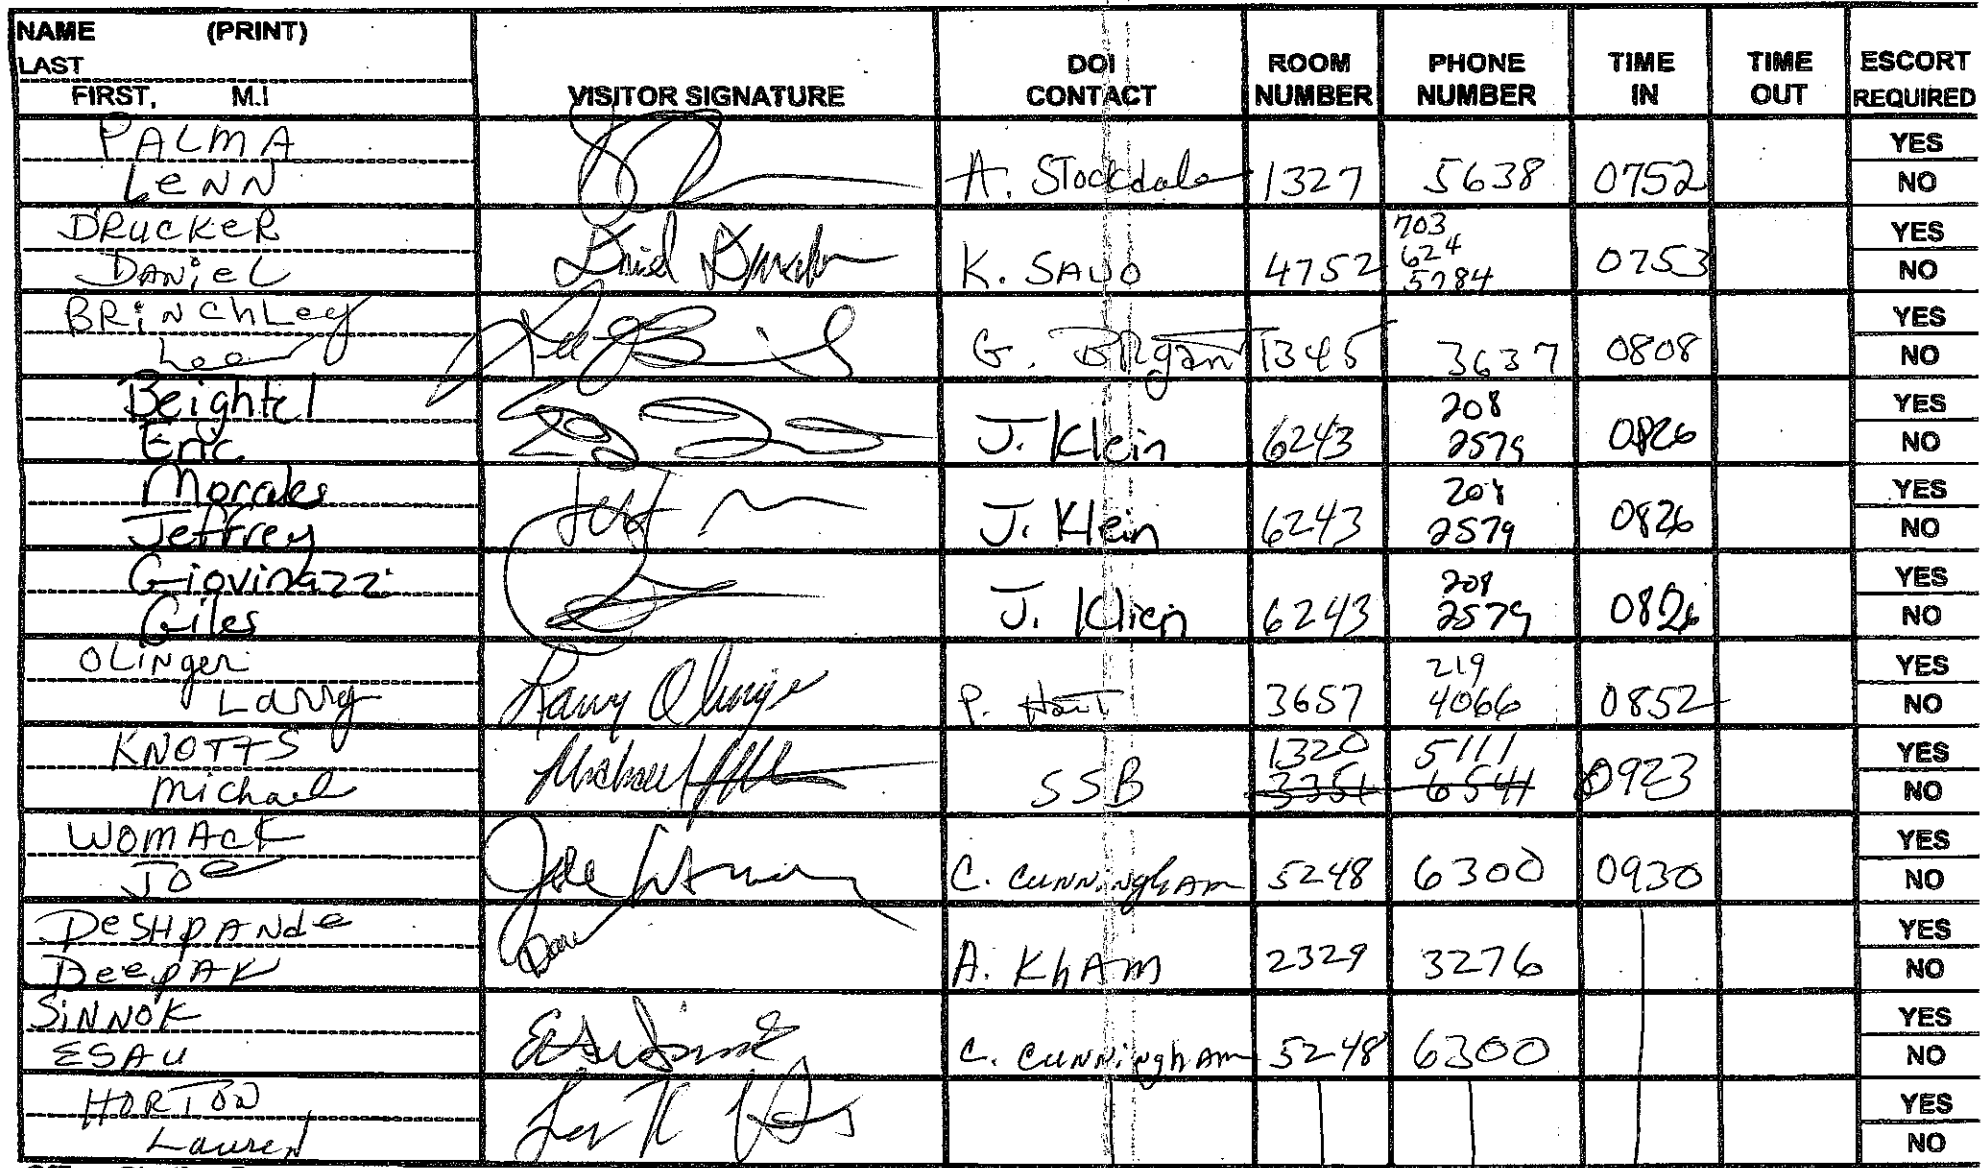 NAME (PRINT)
LAST
FIRST, M.I
VISITOR SIGNATURE
DOI CONTACT
ROOM NUMBER
PHONE NUMBER
TIME IN
TIME OUT
ESCORT REQUIRED
PALMA
LeNN
A. Stockdale 1327 5638 0752
YES
NO
DRuckeR
DANieL
Daniel Drucker
K. SAUO 4752
703
624
5784
0753
YES
NO
BRiNchLey
Lee
G. BRyant 1345 3637 0808
YES
NO
Beightel
Eric
J. Klein 6243
208
2579
0826
YES
NO
Morales
Jeffrey
Jeff
J. Klein 6243
208
2579
0826
YES
NO
Giovinazzi
Giles
J. Klien 6243
208
2579
0826
YES
NO
OLiNger
Larry
Larry Olinger
P. Hart 3657
219
4066
0852
YES
NO
KNOTTS
Michael
Michael
SSB
1320 5111
3354 6541
0923
YES
NO
WomAck
JOe
Joe Womack
C. CuNNiNghAm 5248 6300 0930
YES
NO
DeSHpANde
DeepAK
A. KhAm 2329 3276
YES
NO
SiNNOK
ESAU
Esau Sinnok
C. CuNNiNghAm 5248 6300
YES
NO
HORTON
Lauren
YES
NO